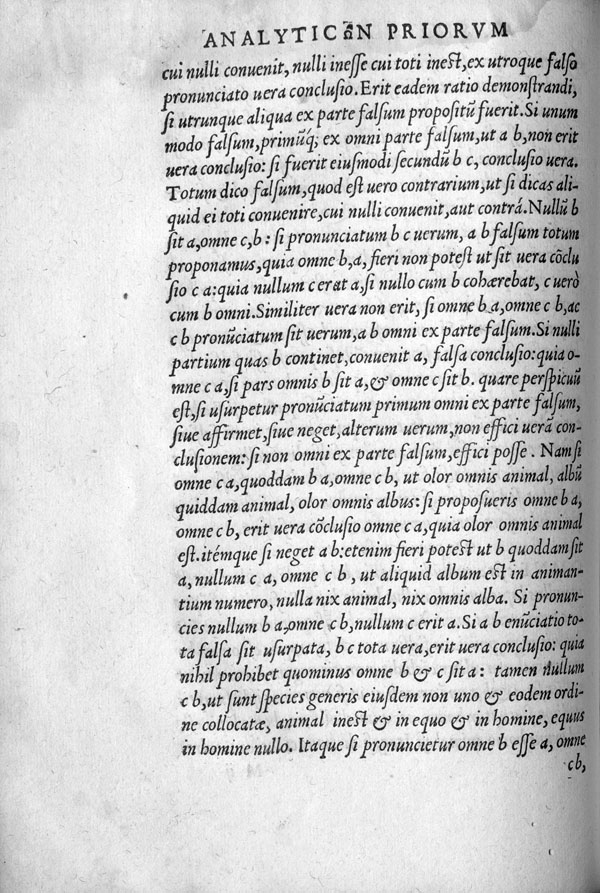 ANALYTICωN PRIORVM
cui nulli conuenit, nulli inesse cui toti inest, ex utroque falso
pronunciato uera conclusio. Erit eadem ratio demonstrandi,
si utrunque aliqua ex parte falsum propositū fuerit. Si unum
modo falsum, primúq; ex omni parte falsum, ut a b, non erit
uera conclusio: si fuerit eiusmodi secundū b c, conclusio uera.
Totum dico falsum, quod est uero contrarium, ut si dicas ali-
quid ei toti conuenire, cui nulli conuenit, aut contrá. Nullū b
sit a, omne c, b: si pronunciatum b c uerum, a b falsum totum
proponamus, quia omne b, a, fieri non potest ut sit uera cōclu
sio c a: quia nullum c erat a, si nullo cum b cohærebat, c uerò
cum b omni. Similiter uera non erit, si omne b a, omne c b, ac
c b pronūciatum sit uerum, a b omni ex parte falsum. Si nulli
partium quas b continet, conuenit a, falsa conclusio: quia o-
mne c a, si pars omnis b sit a, & omne c sit b. quare perspicuū
est, si usurpetur pronūciatum primum omni ex parte falsum,
siue affirmet, siue neget, alterum uerum, non effici uerā con-
clusionem: si non omni ex parte falsum, effici posse. Nam si
omne c a, quoddam b a, omne c b, ut olor omnis animal, albū
quiddam animal, olor omnis albus: si proposueris omne b a,
omne c b, erit uera cōclusio omne c a, quia olor omnis animal
est. itémque si neget a b: etenim fieri potest ut b quoddam sit
a, nullum c a, omne c b, ut aliquid album est in animan-
tium numero, nulla nix animal, nix omnis alba. Si pronun-
cies nullum b a, omne c b, nullum c erit a. Si a b enūciatio to-
ta falsa sit usurpata, b c tota uera, erit uera conclusio: quia
nihil prohibet quominus omne b & c sit a: tamen nullum
c b, ut sunt species generis eiusdem non uno & eodem ordi-
ne collocatæ, animal inest & in equo & in homine, equus
in homine nullo. Itaque si pronuncietur omne b esse a, omne
cb,